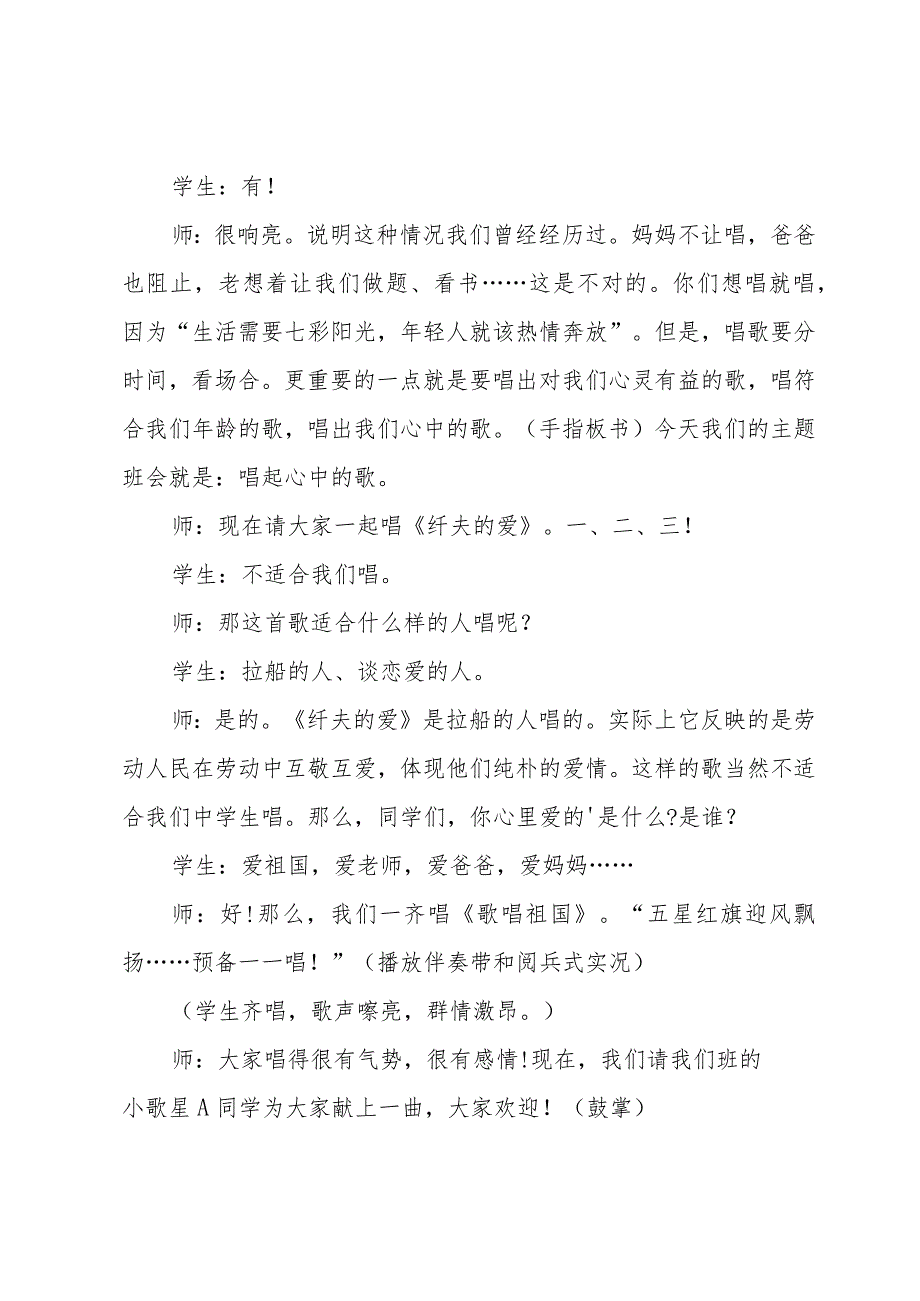 学生：有！
师：很响亮。说明这种情况我们曾经经历过。妈妈不让唱，爸爸
也阻止，老想着让我们做题、看书……这是不对的。你们想唱就唱，
因为“生活需要七彩阳光，年轻人就该热情奔放”。但是，唱歌要分
时间，看场合。更重要的一点就是要唱出对我们心灵有益的歌，唱符
合我们年龄的歌，唱出我们心中的歌。（手指板书）今天我们的主题
班会就是：唱起心中的歌。
师：现在请大家一起唱《纤夫的爱》。一、二、三！
学生：不适合我们唱。
师：那这首歌适合什么样的人唱呢？
学生：拉船的人、谈恋爱的人。
师：是的。《纤夫的爱》是拉船的人唱的。实际上它反映的是劳
动人民在劳动中互敬互爱，体现他们纯朴的爱情。这样的歌当然不适
合我们中学生唱。那么，同学们，你心里爱的'是什么?是谁？
学生：爱祖国，爱老师，爱爸爸，爱妈妈……
师：好!那么，我们一齐唱《歌唱祖国》。“五星红旗迎风飘
扬……预备一一唱！”（播放伴奏带和阅兵式实况）
（学生齐唱，歌声嘹亮，群情激昂。）
师：大家唱得很有气势，很有感情!现在，我们请我们班的
小歌星A同学为大家献上一曲，大家欢迎！（鼓掌）